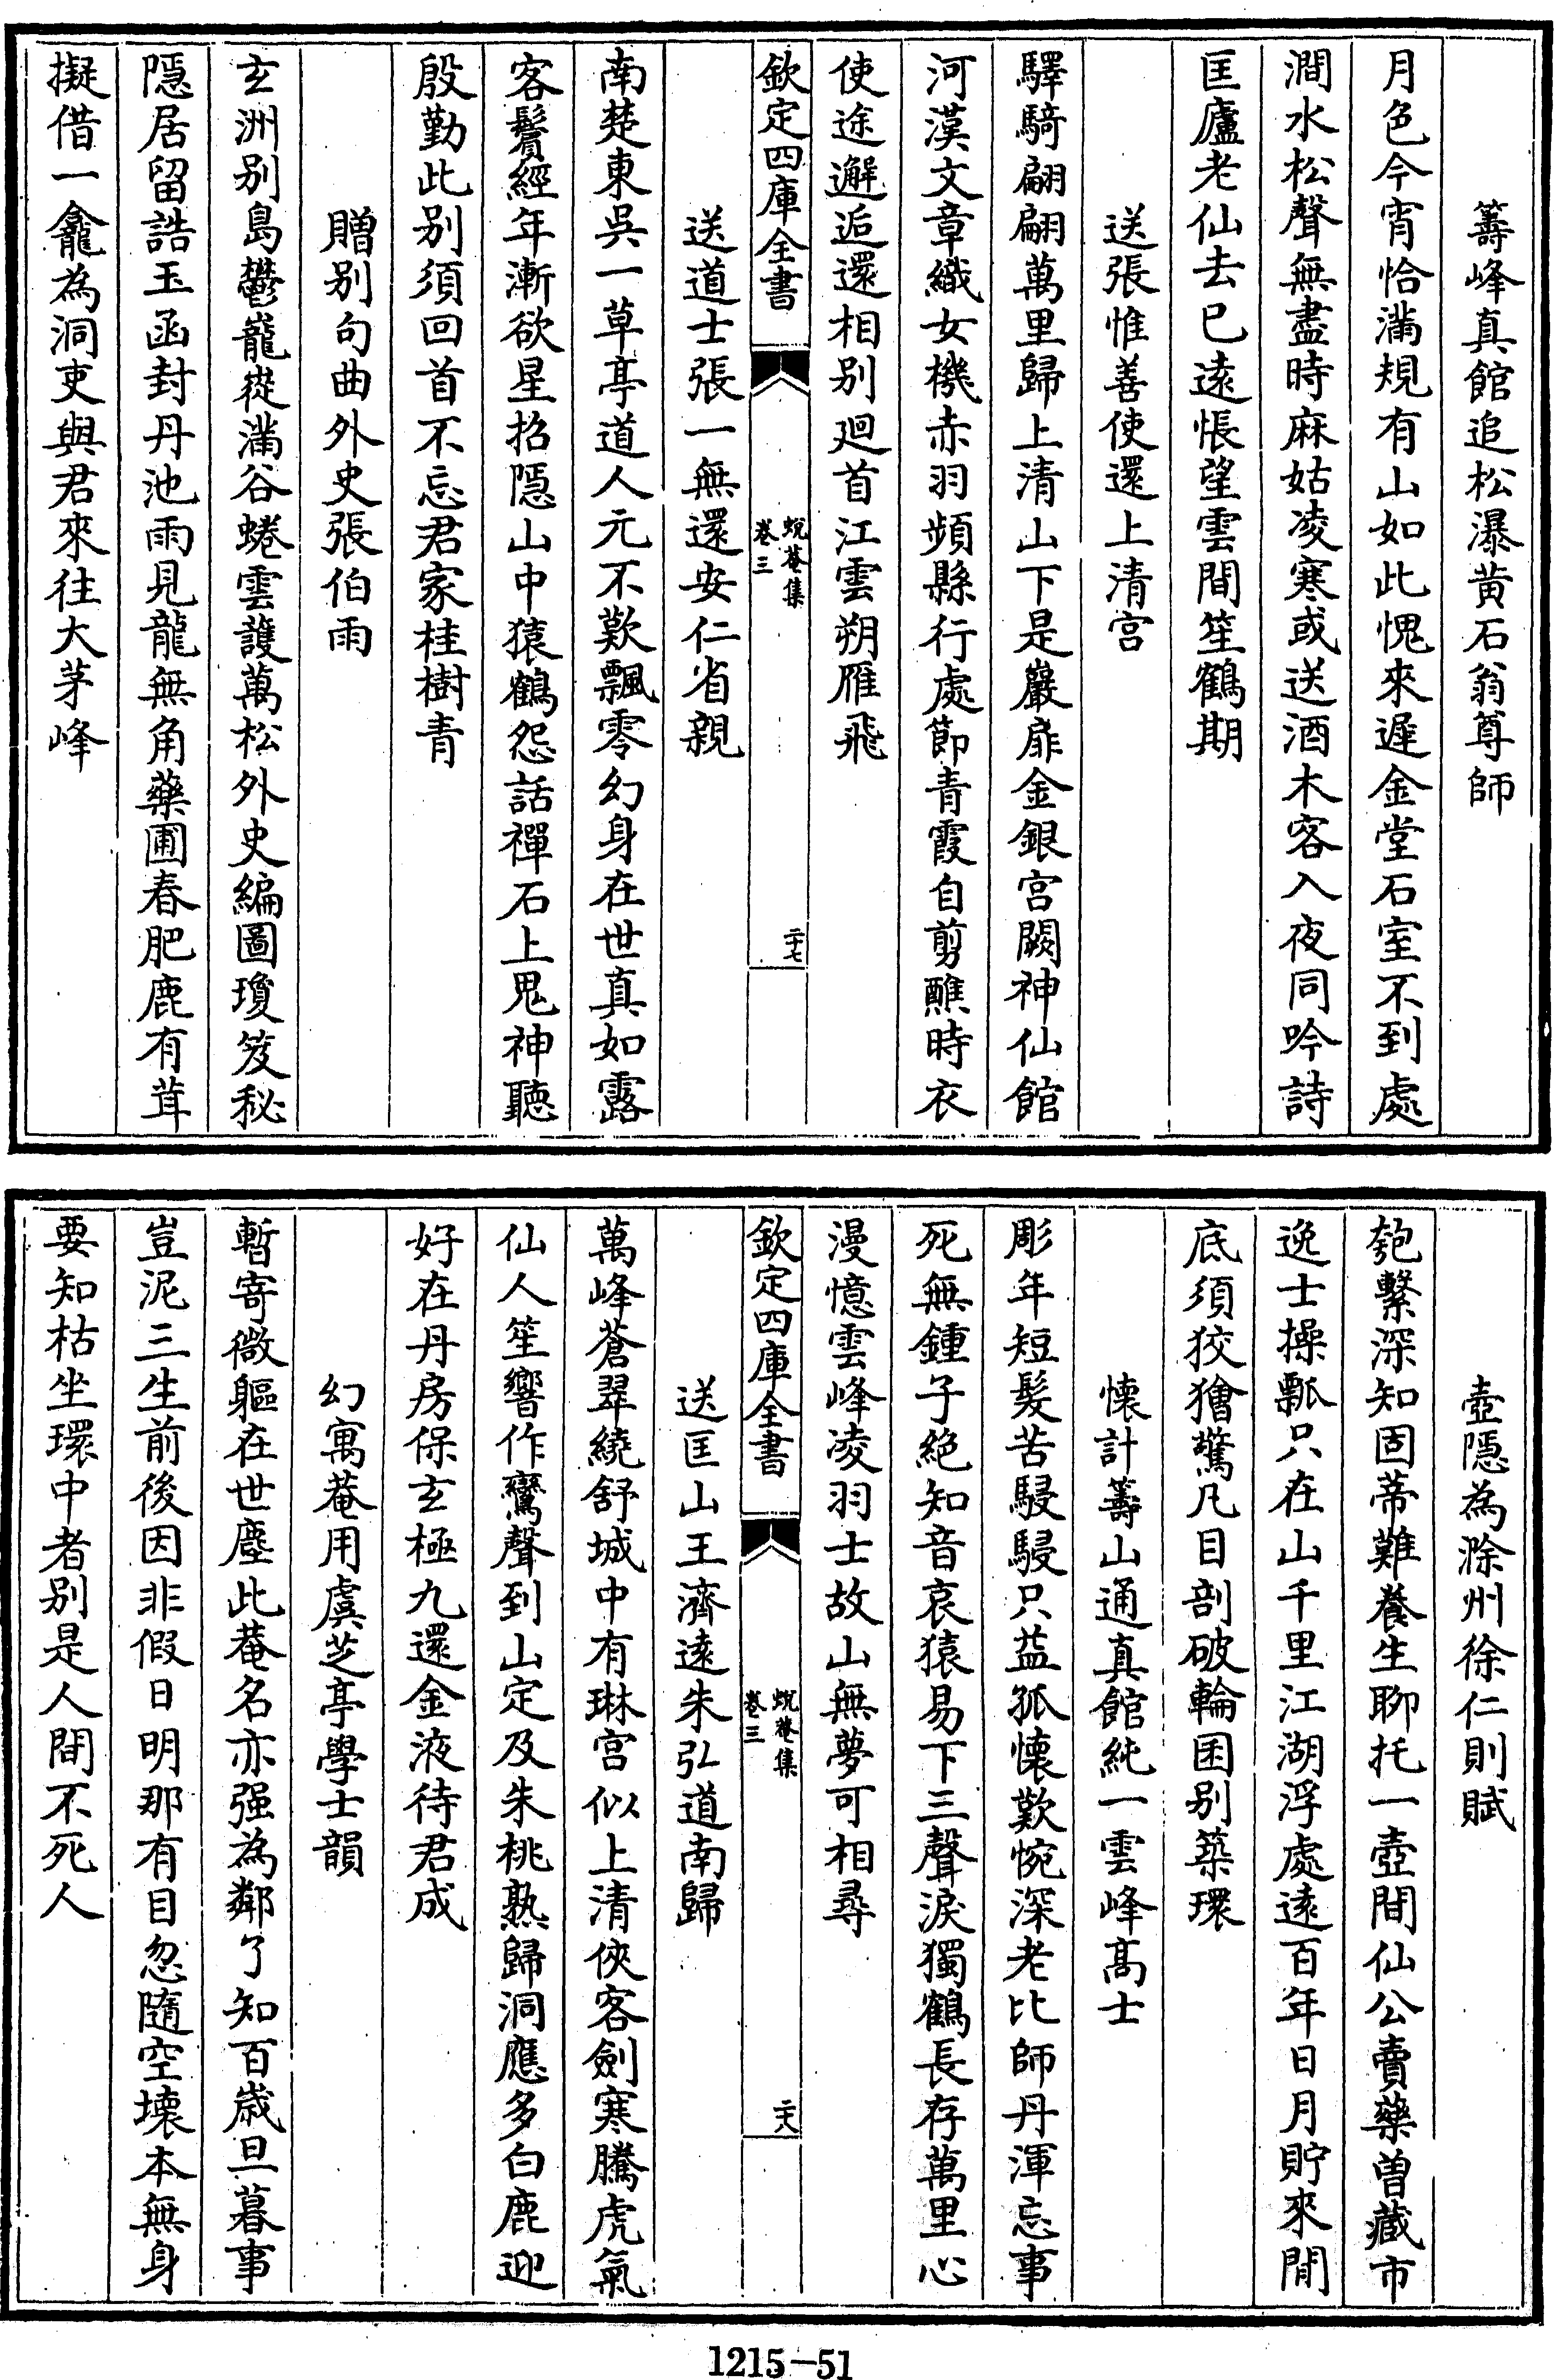 籌峰真館追松瀑黄石翁尊師
月色今宵恰滿規有山如此愧來遲金堂石室不到處
澗水松聲無盡時麻姑凌寒或送酒木客入夜同吟詩
匡廬老仙去已遠悵望雲間笙鶴期
送張惟善使還上清宫
驛騎翩翩萬里歸上清山下是巖扉金銀宫闕神仙館
河漢文章織女機赤羽頻縣行處節青霞自剪醮時衣
使途邂逅還相别廻首江雲朔雁飛
欽定四庫全書
蛻菴集
卷三
二十七
送道士張一無還安仁省親
南楚東吳一草亭道人元不歎飄零幻身在世真如露
客鬢經年漸欲星招隱山中猿鶴怨話禪石上鬼神聽
殷勤此别須回首不忘君家桂樹青
贈别句曲外史張伯雨
玄洲别島鬱巃嵸滿谷蜷雲護萬松外史編圖瓊笈秘
隱居留誥玉函封丹池雨見龍無角藥圃春肥鹿有茸
擬借一龕為洞吏與君來往大茅峰
壺隱為滁州徐仁則賦
匏繫深知固蒂難養生聊托一壺間仙公賣藥曽藏市
逸士操瓢只在山千里江湖浮處遠百年日月貯來閒
底須狡獪驚凡目剖破輪囷别築環
懐計籌山通真館純一雲峰髙士
彫年短髮苦駸駸只益孤懐歎惋深老比師丹渾忘事
死無鍾子絶知音哀猿易下三聲淚獨鶴長存萬里心
漫憶雲峰凌羽士故山無夢可相尋
欽定四庫全書
蛻菴集
卷三
二十八
送匡山王濟遠朱弘道南歸
萬峰蒼翠繞舒城中有琳宫似上清俠客劍寒騰虎氣
仙人笙響作鸞聲到山定及朱桃熟歸洞應多白鹿迎
好在丹房保玄極九還金液待君成
幻寓菴用虞芝亭學士韻
暫寄微軀在世塵此菴名亦强為鄰了知百歲旦暮事
豈泥三生前後因非假日明那有目忽隨空壊本無身
要知枯坐環中者别是人間不死人
1215-51